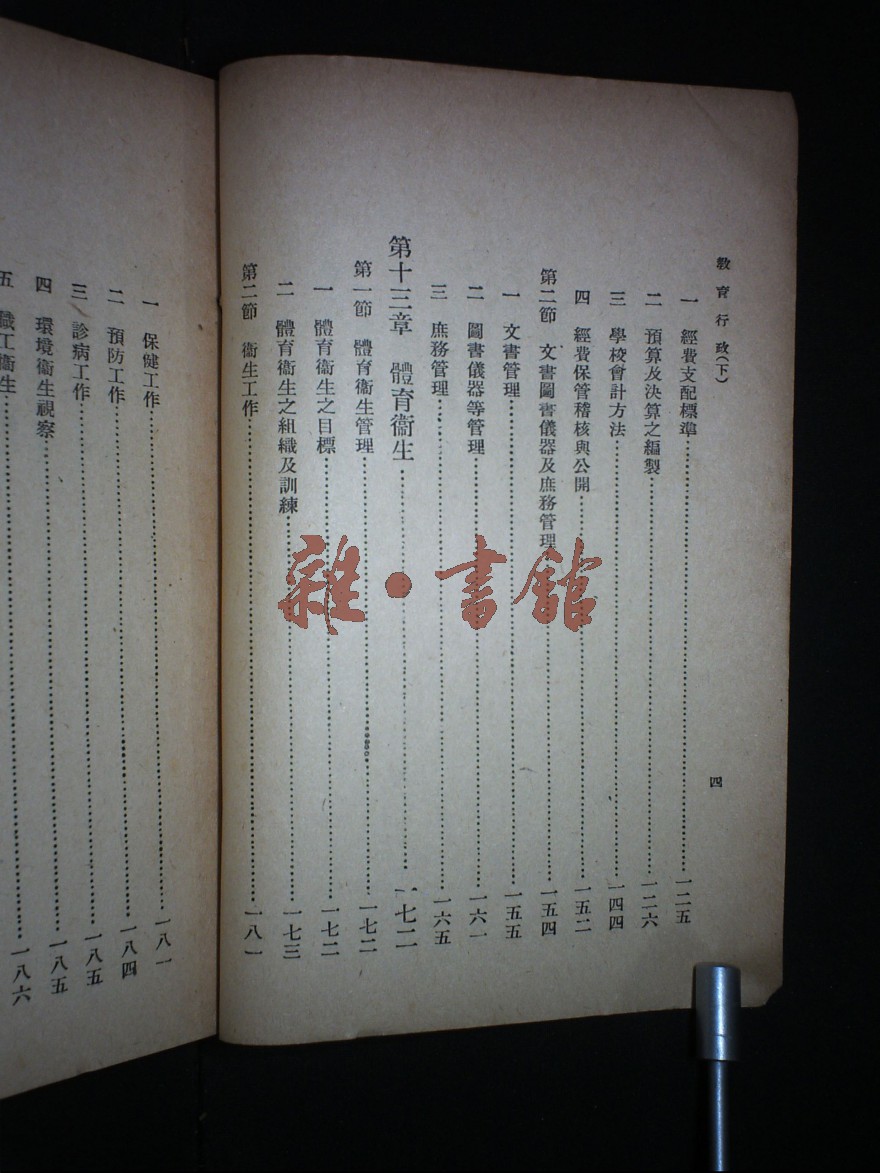 教育行政(下)
一 經費支配標準…………一二五
二 預算及決算之編製…………一二六
三 學校會計方法…………一四四
四 經費保管稽核與公開…………一五二
第二節 文書圖書儀器及庶務管理…………一五四
一 文書管理…………一五五
二 圖書儀器等管理…………一六一
三 庶務管理…………一六五
第十三章 體育衞生…………一七二
第一節 體育衞生管理…………一七二
一 體育衞生之目標…………一七二
二 體育衞生之組織及訓練…………一七三
第二節 衞生工作…………一八一
四
一 保健工作…………一八一
二 預防工作…………一八四
三 診病工作…………一八五
四 環境衞生視察…………一八五
五 職工衞生…………一八六
雜·書館